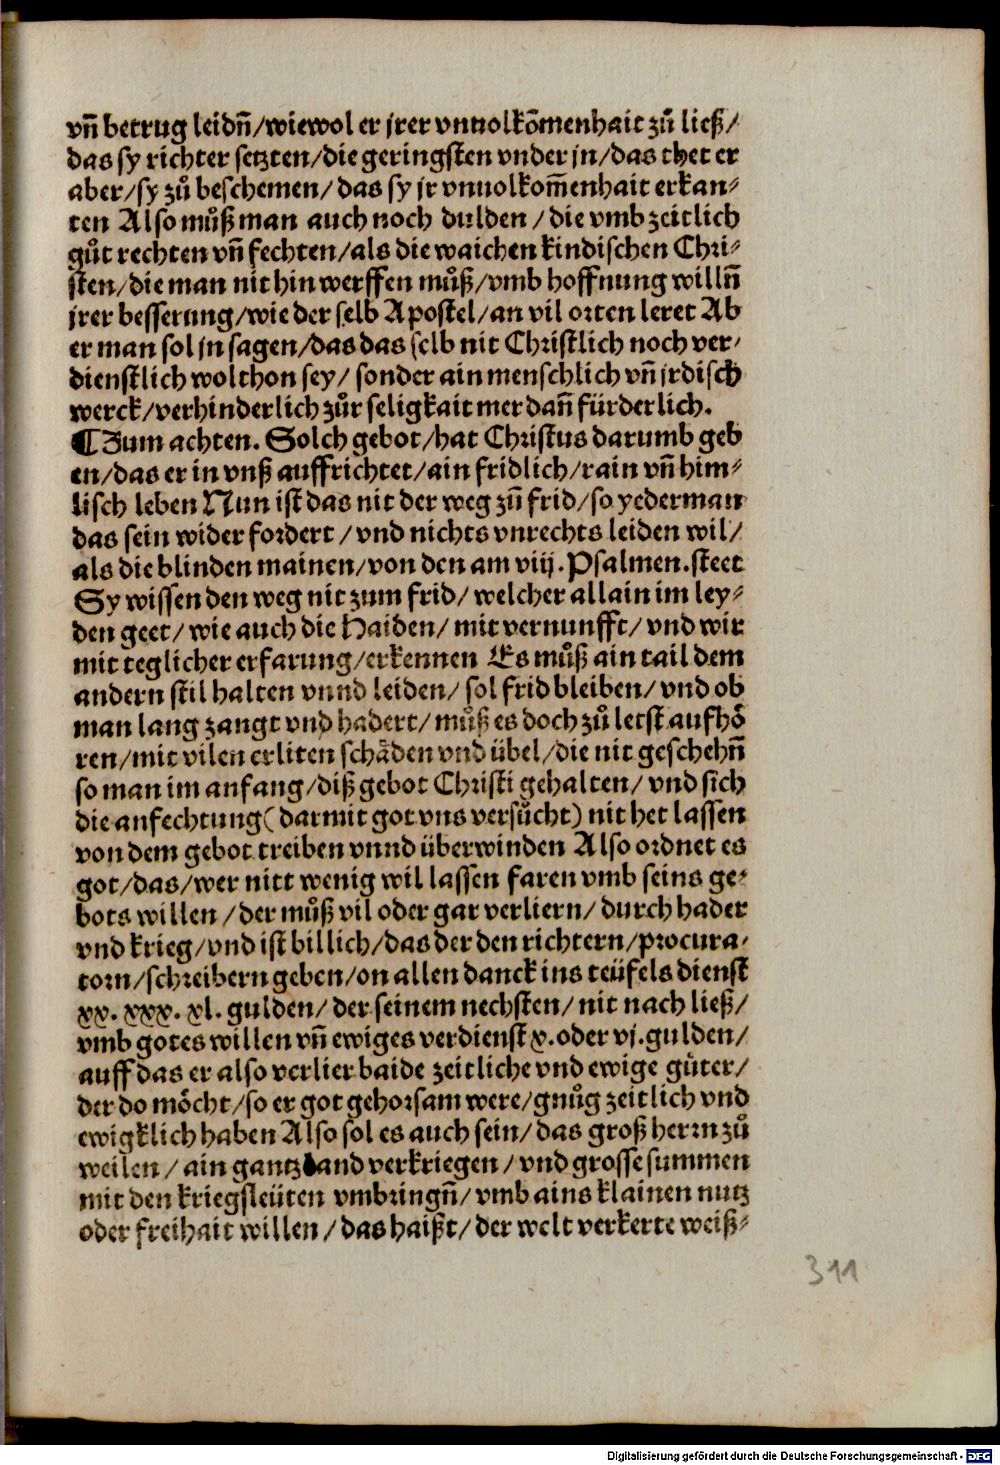 vñ betrug leidñ/wiewol er jrer vnuolkõmenhait zů ließ/
das sy richter setzten/die geringsten vnder jn/das thet er
aber/sy zů beschemen/das sy jr vnuolkom̃enhait erkan⸗
ten Also můß man auch noch dulden/die vmb zeitlich
gůt rechten vñ fechten/als die waichen kindischen Chri⸗
sten/die man nit hin werffen můß/vmb hoffnung willñ
jrer besserung/wie der selb Apostel/an vil orten leret Ab
er man sol jn sagen/das das selb nit Christlich noch ver⸗
dienstlich wolthon sey/sonder ain menschlich vñ jrdisch
werck/verhinderlich zůr seligkait mer dañ fürderlich.
¶Zum achten. Solch gebot/hat Christus darumb geb
en/das er in vnß auffrichtet/ain fridlich/rain vñ him⸗
lisch leben Nun ist das nit der weg zů frid/so yederman
das sein wider fordert/vnd nichts vnrechts leiden wil/
als die blinden mainen/von den am viij. Psalmen. steet
Sy wissen den weg nit zum frid/welcher allain im ley⸗
den geet/wie auch die Haiden/mit vernunfft/vnd wir
mit teglicher erfarung/erkennen Es můß ain tail dem
andern stil halten vnnd leiden/sol frid bleiben/vnd ob
man lang zangt vnd hadert/můß es doch zů letst aufhö
ren/mit vilen erliten schäden vnd übel/die nit geschehñ
so man im anfang/diß gebot Christi gehalten/vnd sich
die anfechtung(darmit got vns versůcht) nit het lassen
von dem gebot treiben vnnd überwinden Also ordnet es
got/das/wer nitt wenig wil lassen faren vmb seins ge⸗
bots willen/der můß vil oder gar verliern/durch hader
vnd krieg/vnd ist billich/das der den richtern/procura⸗
torn/schreibern geben/on allen danck ins teüfels dienst
xx. xxx. xl. gulden/der seinem nechsten/nit nach ließ/
vmb gotes willen vñ ewiges verdienst x. oder vj. gulden/
auff das er also verlier baide zeitliche vnd ewige güter/
der do möcht/so er got gehorsam were/gnůg zeitlich vnd
ewigklich haben Also sol es auch sein/das groß herrn zů
weilen/ain gantz land verkriegen/vnd grosse summen
mit den kriegsleüten vmbringñ/vmb ains klainen nutz
oder freihait willen/das haißt/der welt verkerte weiß⸗
311
Digitalisierung gefördert durch die Deutsche Forschungsgemeinschaft - DFG